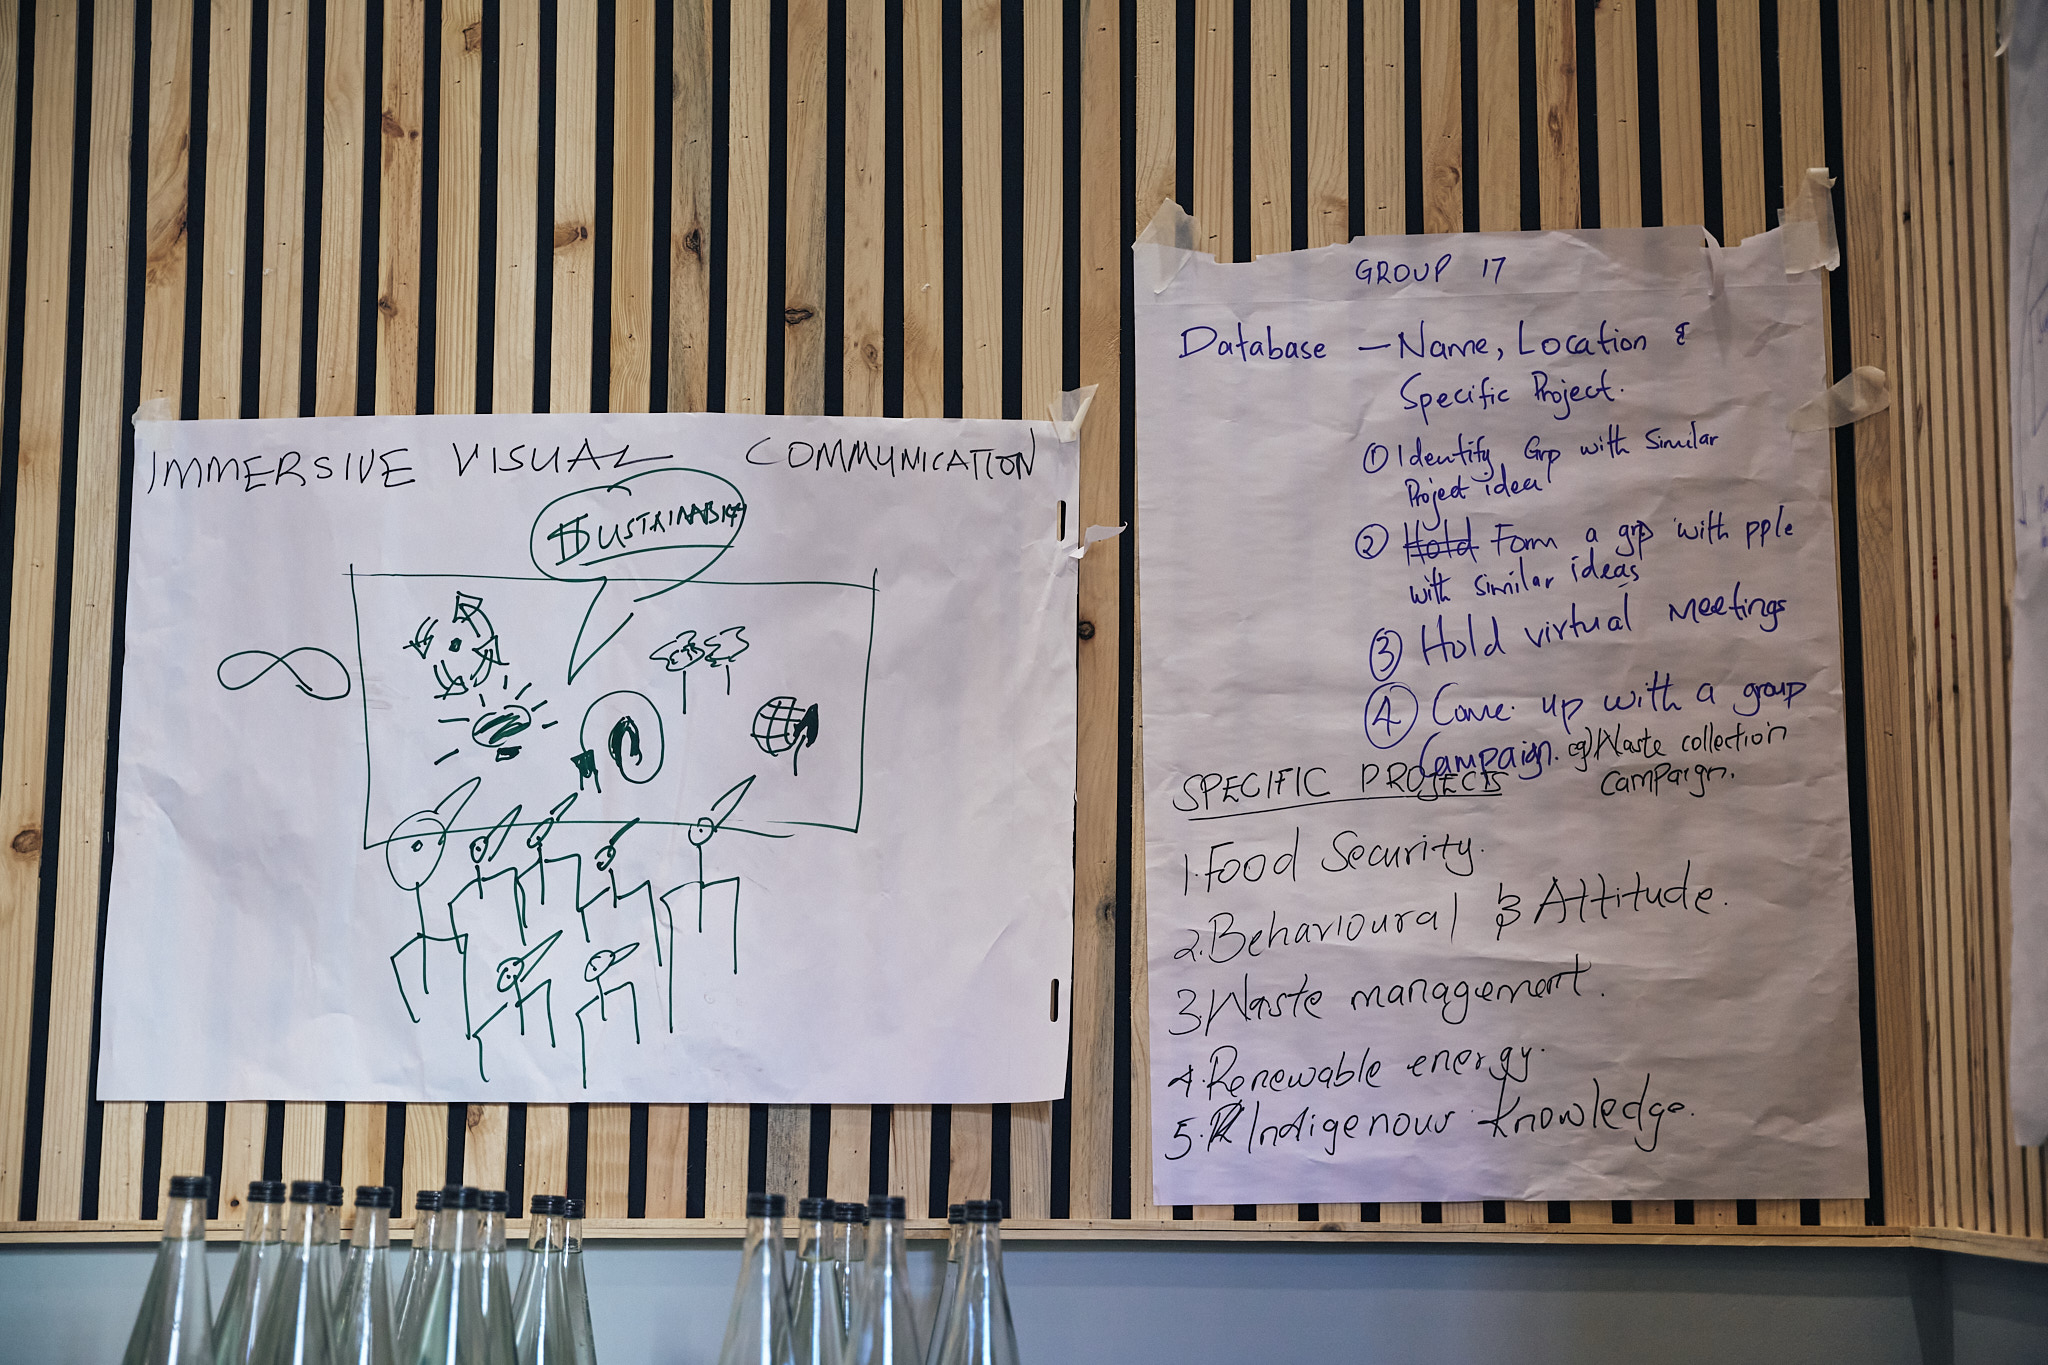 IMMERSIVE VISUAL COMMUNICATION
SUSTAINABITY
GROUP 17
Database — Name, Location &
Specific Project.
① Identify Grp with Similar
Project idea
② Hold Form a grp with pple
with similar ideas
③ Hold virtual meetings
④ Come up with a group
Campaign. eg) Waste collection
campaign.
SPECIFIC PROJECTS
1. Food Security.
2. Behavioural & Attitude.
3. Waste management.
4. Renewable energy.
5. Indigenous knowledge.